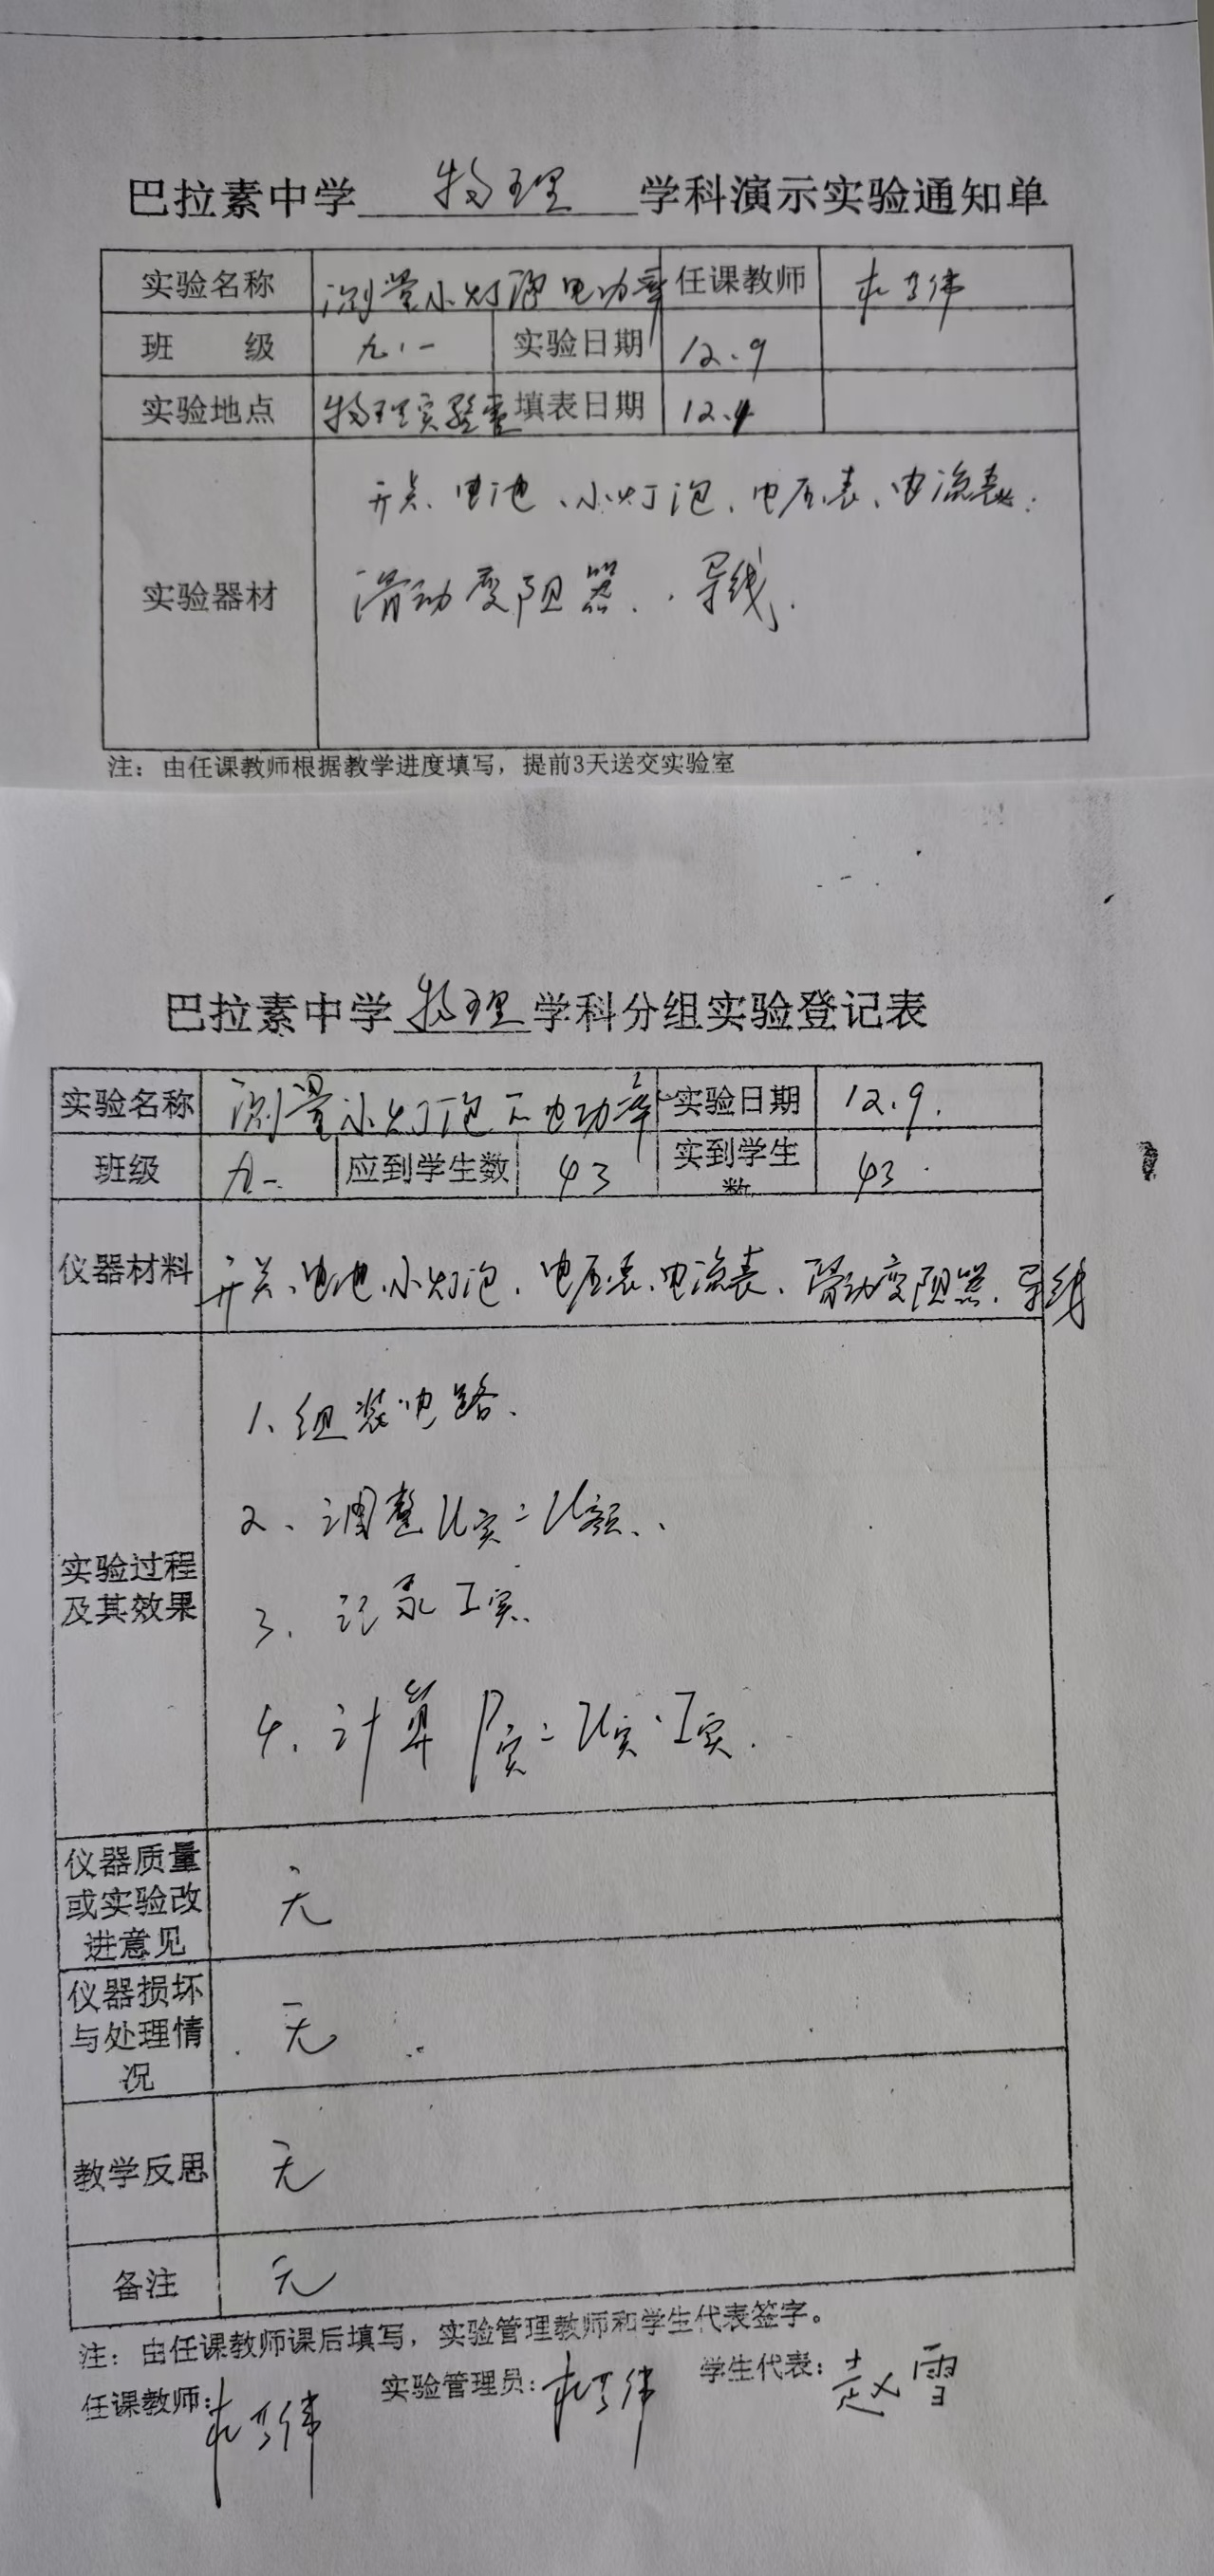 巴拉素中学 物理 学科演示实验通知单
实验名称 测量小灯泡电功率 任课教师
班 级 九.一 实验日期 12.9
实验地点 物理实验室 填表日期 12.4
开关、电池、小灯泡、电压表、电流表.
实验器材 滑动变阻器、导线.
注：由任课教师根据教学进度填写，提前3天送交实验室
巴拉素中学 物理 学科分组实验登记表
实验名称 测量小灯泡 电功率 实验日期 12.9.
班级 九一 应到学生数 43 实到学生数 43
仪器材料 开关、电池、小灯泡、电压表、电流表、滑动变阻器、导线
实验过程及其效果
1、组装电路.
2、调整U实=U额.
3、记录I实.
4、计算P实=U实·I实.
仪器质量或实验改进意见 无
仪器损坏与处理情况 无
教学反思 无
备注 无
注：由任课教师课后填写，实验管理教师和学生代表签字。
任课教师： 实验管理员： 学生代表：赵雪